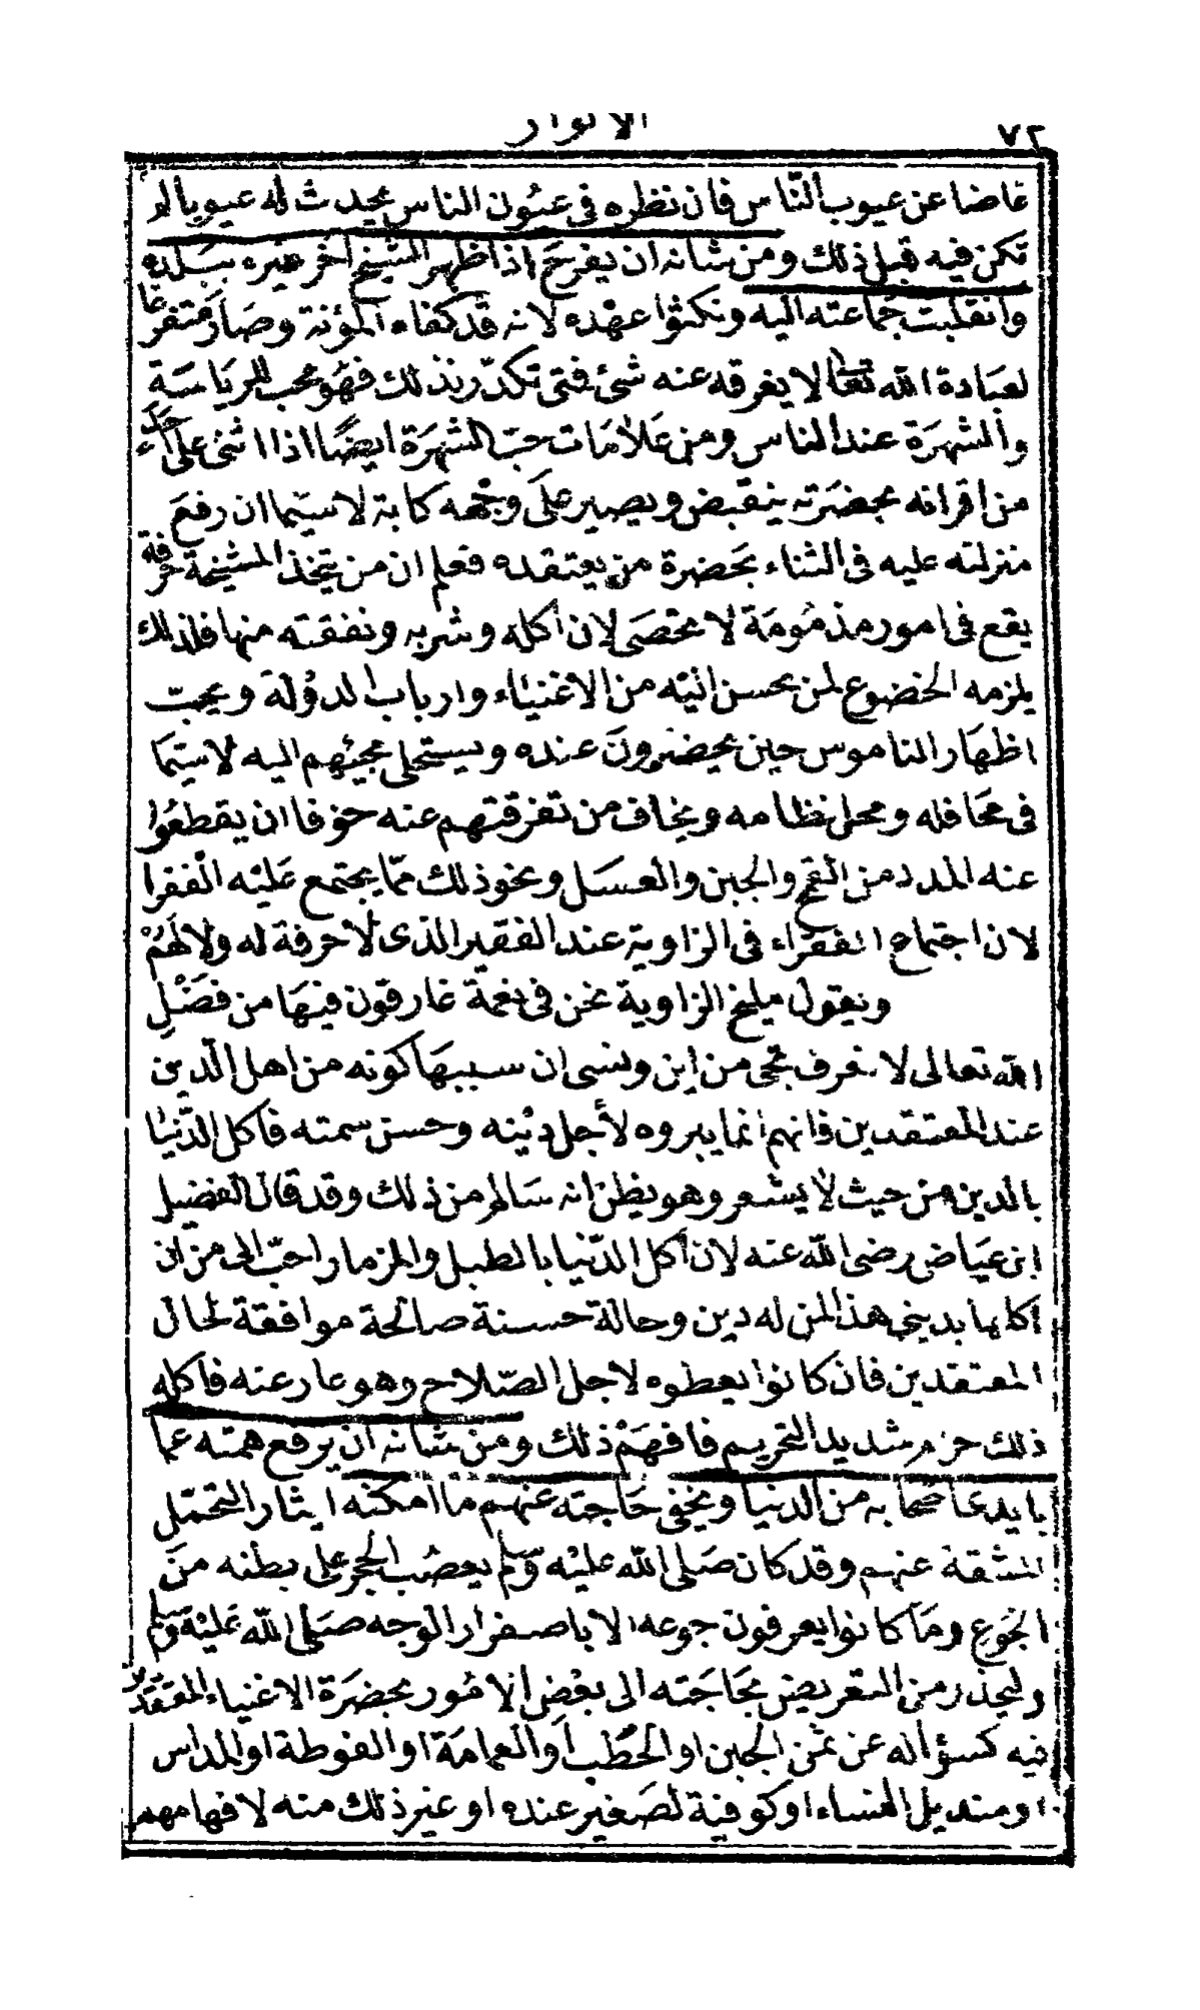 الانوار
٧٢
غاضا عن عيوب النّاس فان نظره فى عيُون الناس يحدث له عيوبا لم
تكن فيه قبل ذلك ومن شانه ان يفرح اذا ظهر الشيخ اخر غيره ببَلده
وانقلبت جماعته اليه ونكثوا عهْده لانه قد كفاه المؤنة وصار متفرغا
لعبَادة الله تعالى لا يفرقه عنه شئ فمتى تكدّر بذلك فهو محب للريَاسَة
والشهرَة عند الناس ومن عَلامَات حبّ الشهرَة ايضًا اذا اثنى على احد
من اقرانه بحضرَته ينقبض ويصير علَى وجْهه كابة لا سيّما ان رفعَ
منزلته عليه فى الثناء بحَضرة من يعتقده فعلم ان من يتخذ المشيخة حرفة
يقع فى امور مذمُومَة لا تحصَى لان أكله وشربه ونفقته منها فلذلك
يلزمه الخضوع لمن يحسن اليه من الاغنيَاء وارباب الدوْلة ويحبّ
اظهَار الناموس حين يحضرونَ عنده ويستحلى مجيئهم اليه لا سيّمَا
فى محَافله ومحل نظامه ويخاف من تفرقتهم عنه خوفا ان يقطعُوا
عنه المدد من القمح والجبن والعسَل ونحو ذلك ممّا يجتمع عَليْه الفقرا
لان اجتماع الفقرَاء فى الزاوية عند الفقير الذى لا حرفة له ولا لهُمْ
ويقول مليح الزاوية نحن فى نعمة غارقون فيهَا من فضَّلِ
الله تعالى لا نعرف تجى من اين وينسى ان سببهَا كونه من اهل الدّين
عند المعتقدين فانهم انما يبروه لأجل ديْنه وحسن سمته فاكل الدّنيَا
بالدين من حيث لا يشعر وهو يظن انه سَالم من ذلك وقد قال الفضيل
ابن عيَاض رضى الله عنه لان أكل الدّنيا بالطبل والمزمار احبّ الى من ان
اكلها بدينى هذا لمن له دين وحالة حسنة صالحة موافقة لحال
المعتقدين فان كانوا يعطوه لاجل الصّلاح وهو عار عنه فاكله
ذلك حرام شديد التحريم فافهَمْ ذلك ومن شانه ان يرفع همته عما
بايدى اصحابه من الدنيا ويخفى حَاجته عنهم ما امكنه ايثار التحمّل
المشقة عنهم وقد كان صَلى الله عليْه وسّلم يعصُب الحجر على بطنه منَ
الجوع ومَا كانوا يعرفون جوعه الا باصفرار الوجه صَلى الله عَليْه وسلم
وليحذر من التعريض بحَاجَته الى بعْض الامُور بحضرَة الاغنياء المعتقدين
فيه كسؤاله عن ثمن الجبن او الحطَب أو العمامَة او الفوطة او المداس
او منديل النساء او كوفية لصَغير عنده او غير ذلك منه لافهامهم